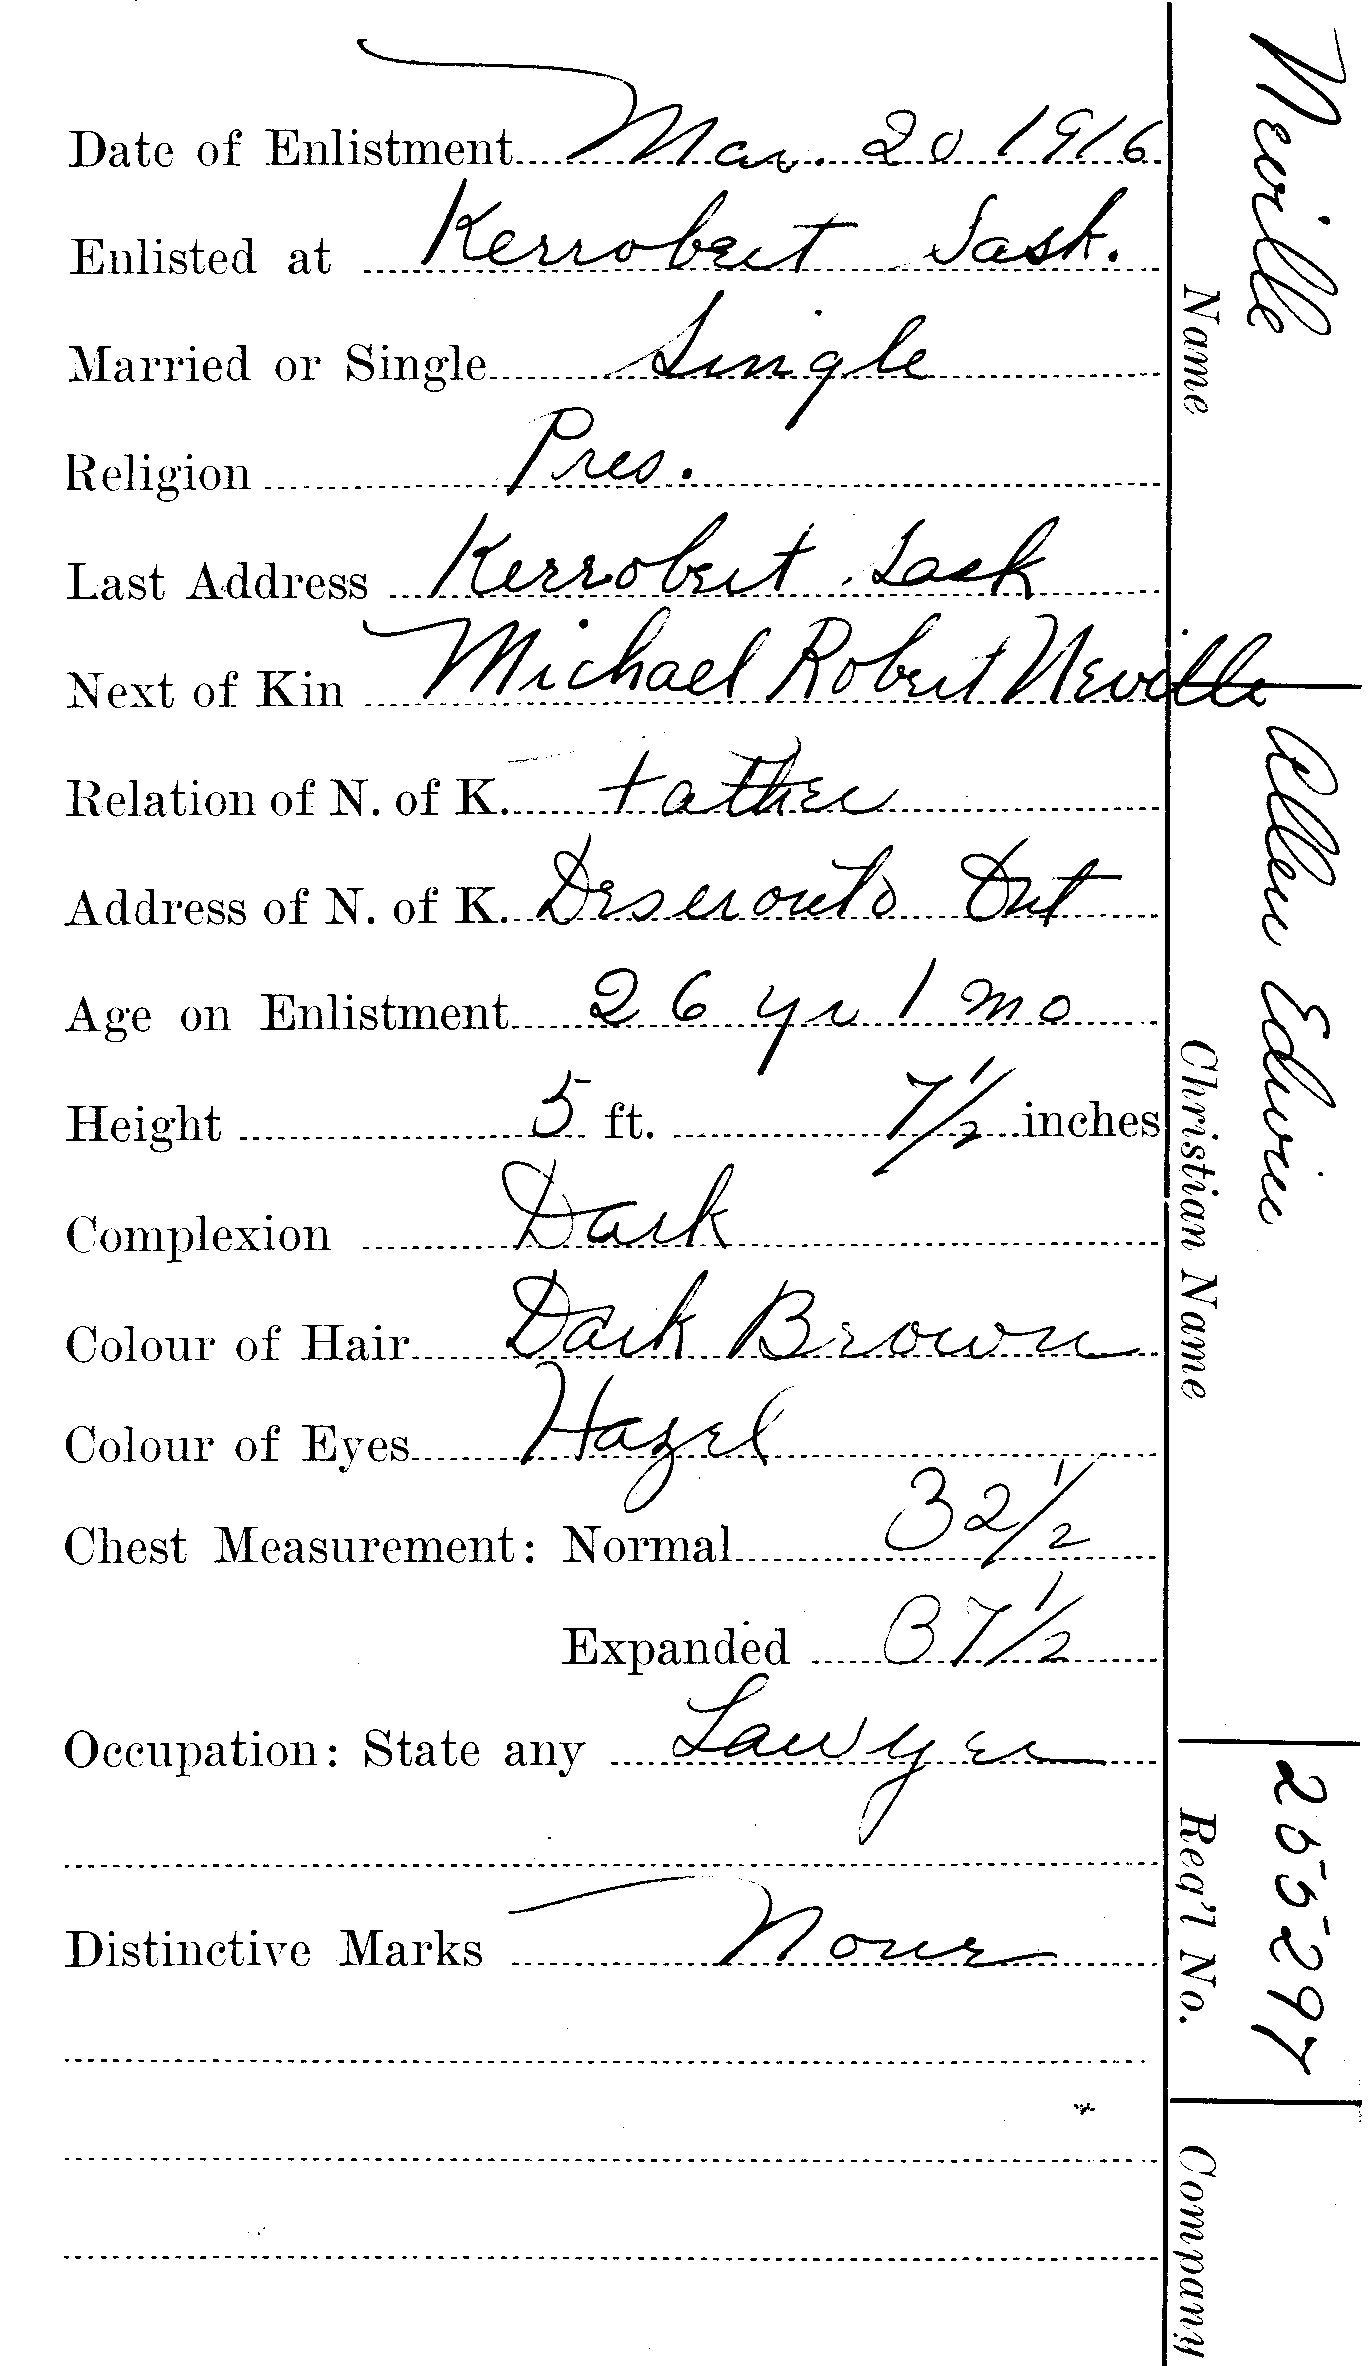 Date of Enlistment Mar. 20 1916
Enlisted at Kerrobert Sask.
Married or Single Single
Religion Pres.
Last Address Kerrobert Sask
Next of Kin Michael Robert Neville
Relation of N. of K. Father
Address of N. of K. Deseronto Ont
Age on Enlistment 26 yr 1 mo
Height 5 ft. 7½ inches
Complexion Dark
Colour of Hair Dark Brown
Colour of Eyes Hazel
Chest Measurement: Normal 32½
Expanded 37½
Occupation: State any Lawyer
Distinctive Marks None
Neville
Name
Allen Edwin
Christian Name
255297
Req'l No.
Company